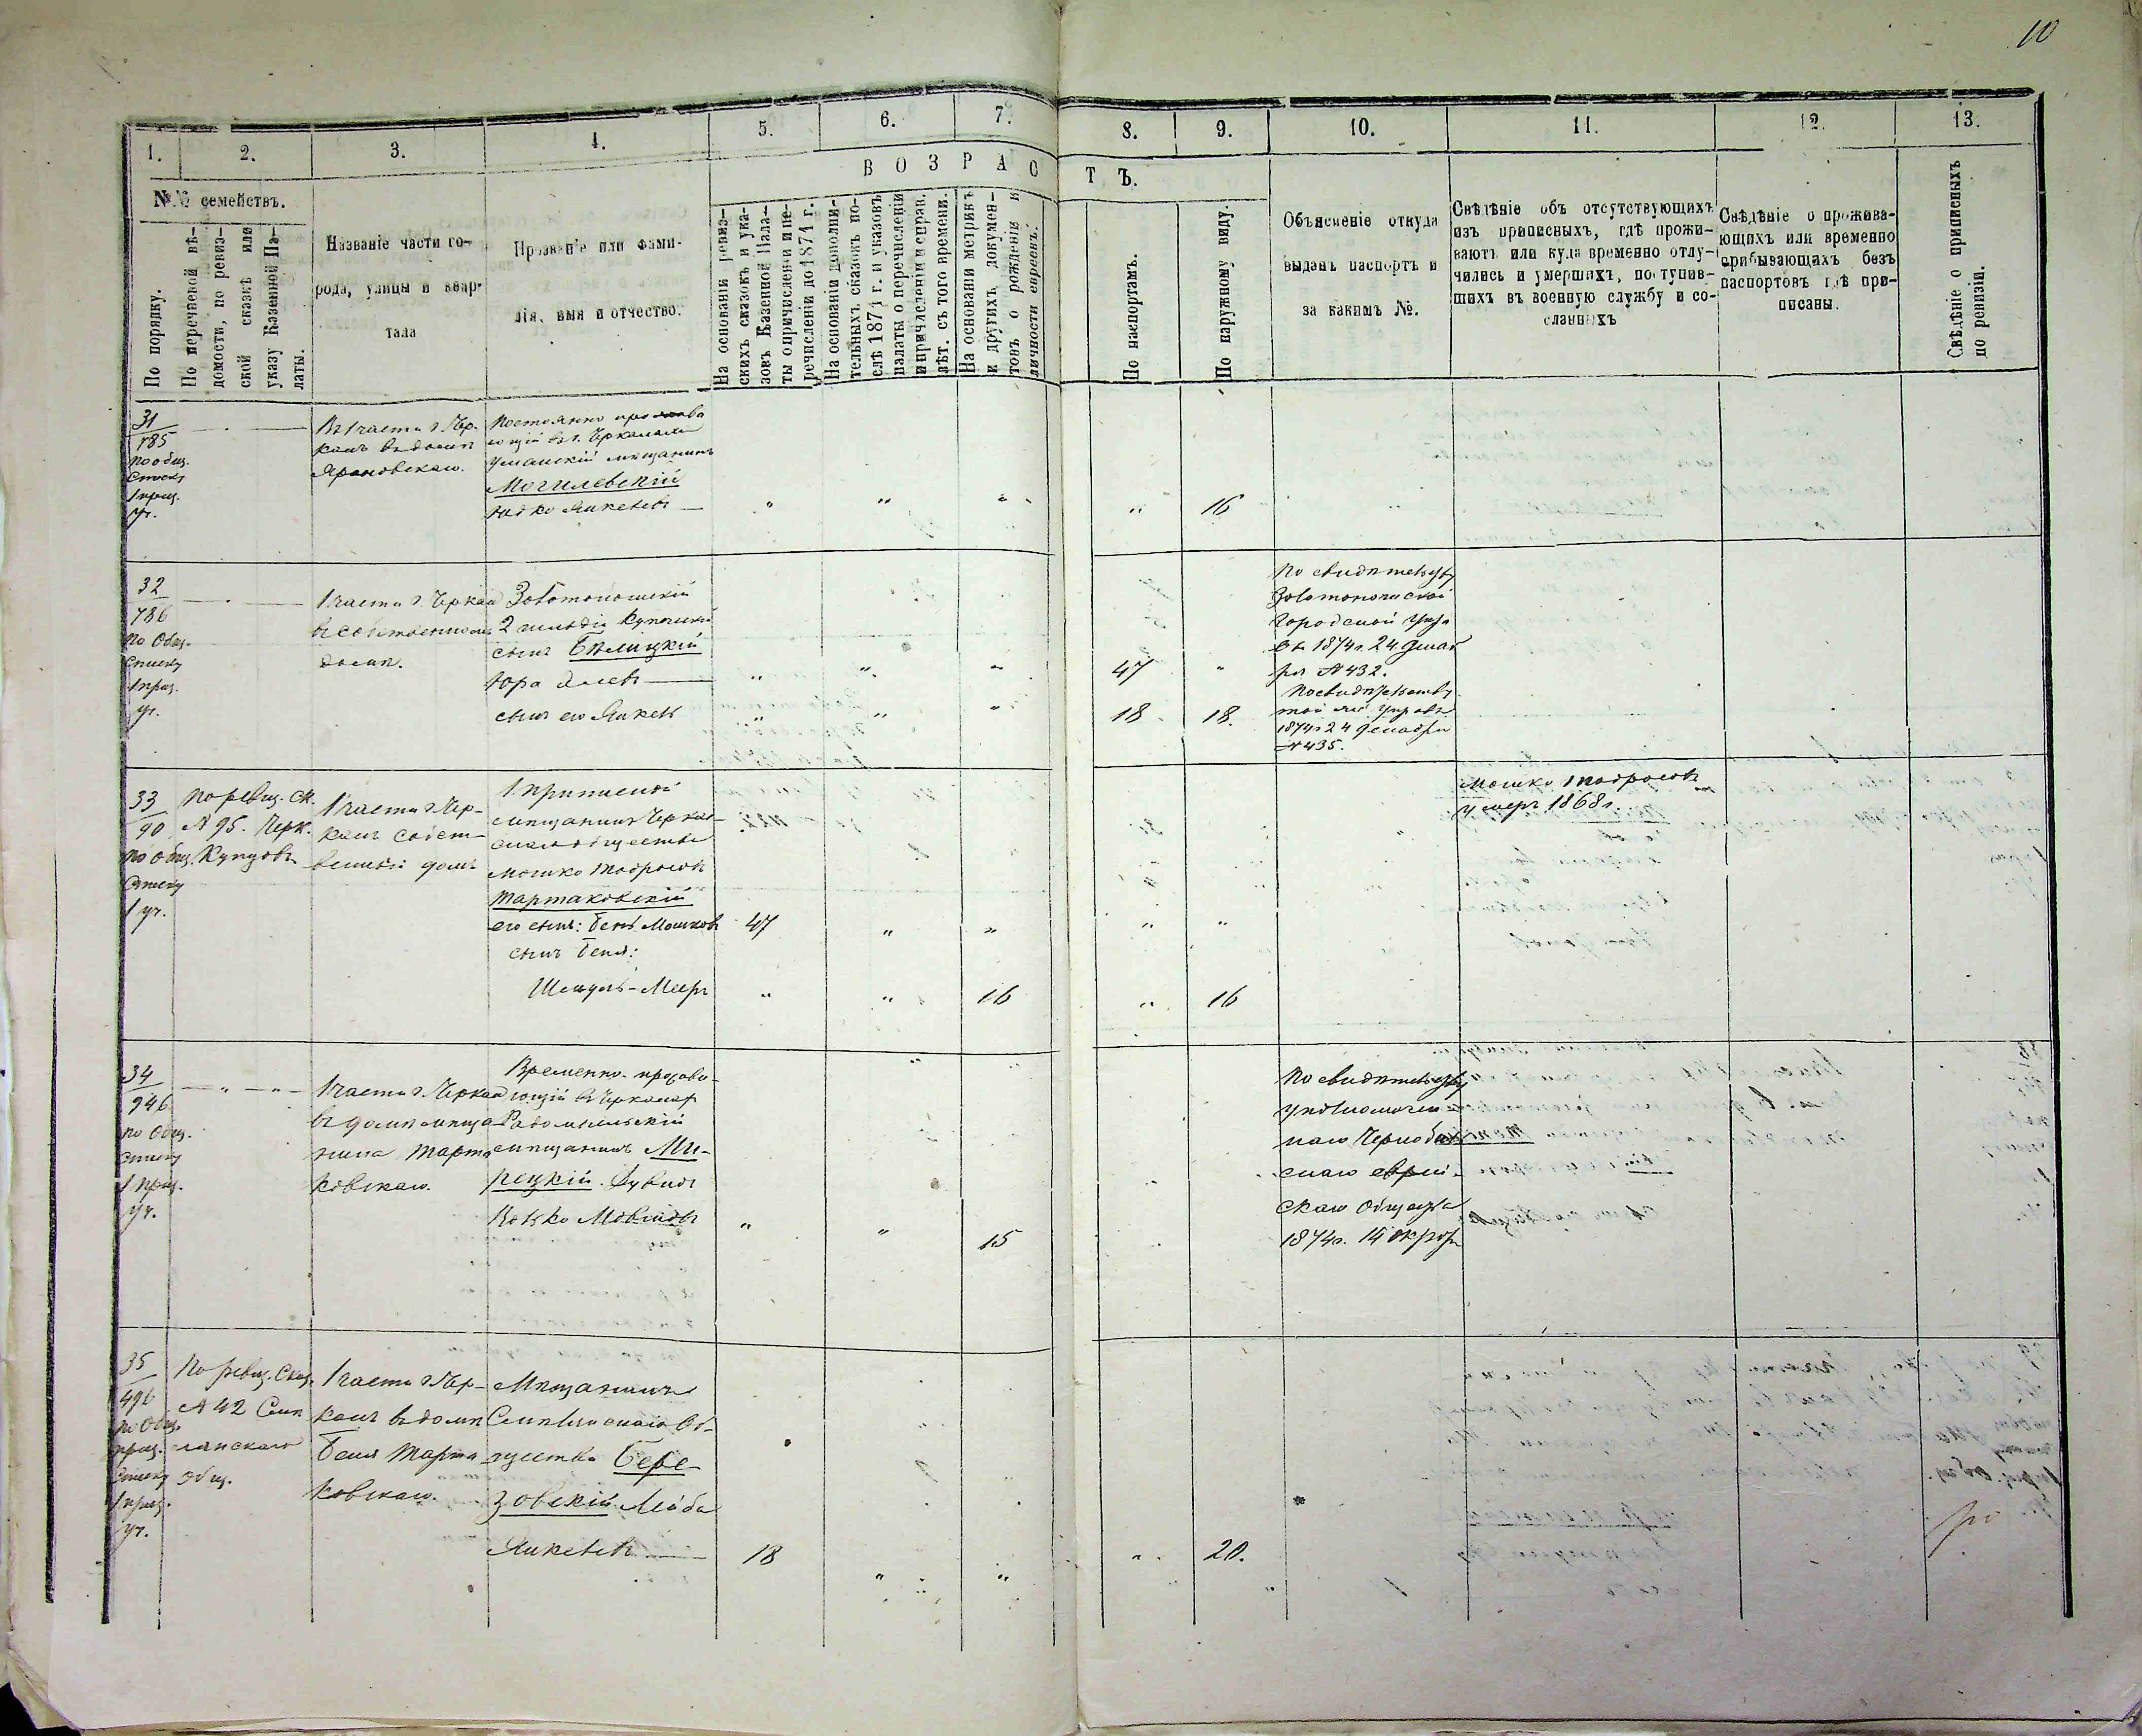 10
1. 2. 3. 4. 5. 6. 7. 8. 9. 10. 11. 12. 13.
ВОЗРАСТЪ.
№№ семействъ.
По порядку.
По перечневой вѣ-
домости, по ревиз-
ской сказкѣ или
указу Казенной Па-
латы.
Названіе части го-
рода, улицы и квар-
тала
Прозваніе или фами-
лія, имя и отчество.
На основаніи ревиз-
скихъ сказокъ и ука-
зовъ Казенной Пала-
ты о причисленіи и пе-
речисленіи до 1874 г.
На основаніи дополни-
тельныхъ сказокъ по-
слѣ 1874 г. и указовъ
палаты о перечисленіи
и причисленіи и справ.
лѣт. съ того времени.
На основаніи метрикъ
и другихъ докумен-
товъ о рожденіи и
личности евреевъ.
По паспортамъ.
По наружному виду.
Объясненіе откуда
выданъ паспортъ и
за какимъ №.
Свѣдѣніе объ отсутствующихъ
изъ приписныхъ, гдѣ прожи-
ваютъ или куда временно отлу-
чились и умершихъ, поступив-
шихъ въ военную службу и со-
сланныхъ
Свѣдѣніе о прожива-
ющихъ или временно
прибывающихъ безъ
паспортовъ гдѣ при-
писаны.
Свѣдѣніе о приписныхъ
по ревизіи.
31
785
по общ.
списку
1 приз.
уч.
Въ 1 части г. Чер-
касъ въ домѣ
Постоянно прожива
ющій въ г. Черкасахъ
Уманскій мѣщанинъ
Могилевскій
Юдко Янкелевъ
16
32
786
по общ.
списку
1 приз.
уч.
1 части г. Черкас
въ собственномъ
домѣ.
Золотоношскій
2 гильдіи купеческій
сынъ Бѣлицкій
47
сынъ его Янкель
18 18.
По свидѣтельству
Золотоношской
Городской Упра
въ 1874 г. 24 декаб
ря №432.
По свидѣтельству
той же Управы
1874 г. 24 декабря
№435.
33
90
по общ.
списку
1 уч.
По ревиз. ск.
№95. Черк.
Купцовъ
1 части г. Чер-
касъ собст-
венный домъ
1. Приписной
мѣщанинъ Черкас-
скаго общества
Мошко Тодросовъ
Тартаковскій
его сынъ: Бень Мошковъ 47
сынъ Беня:
Шмуль-Меер 16 16
Мошко Тодросовъ
умеръ 1868 г.
34
946
по общ.
списку
1 приз.
уч.
1 части г. Черкас
въ домѣ мѣща
нина Тарта
ковскаго.
Временно-прожива-
ющій въ Черкасах
Радомысльскій
мѣщанинъ Ми-
рецкій Дувидъ
Волько Мовшовъ
15
По свидѣтельству
уполномочен-
наго Чернобыль
скаго еврей-
скаго общества
1874 г.
35
496
по общ.
приз.
списку
1 приз.
уч.
По ревиз. сказ.
№42 Смѣ
лянскаго
общ.
1 части г. Чер-
касъ въ домѣ
Беня Тарта
ковскаго.
Мѣщанинъ
Смѣлянскаго Об-
щества Бере-
зовскій Лейба
Янкелевъ 18 20.